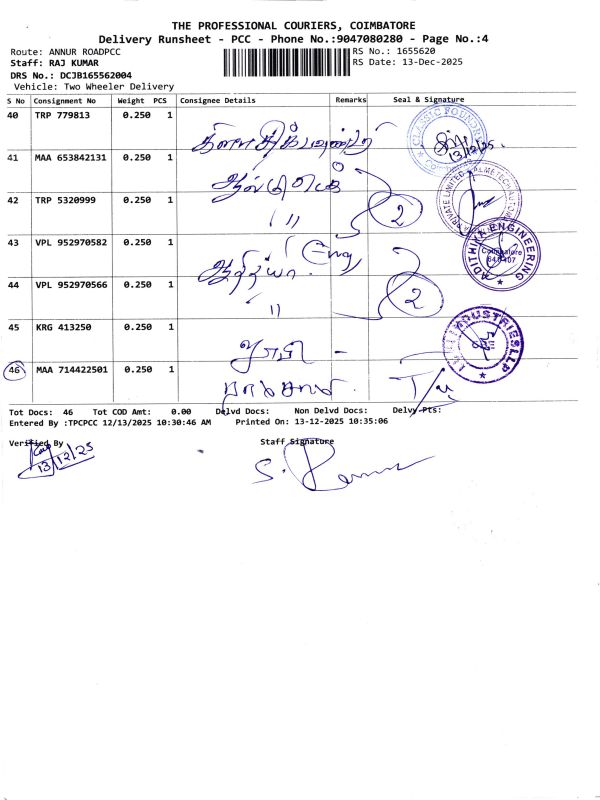 THE PROFESSIONAL COURIERS, COIMBATORE
Delivery Runsheet - PCC - Phone No.:9047080280 - Page No.:4
Route: ANNUR ROADPCC
RS No.: 1655620
Staff: RAJ KUMAR
RS Date: 13-Dec-2025
DRS No.: DCJB165562004
Vehicle: Two Wheeler Delivery
S No Consignment No Weight PCS Consignee Details Remarks Seal & Signature
40 TRP 779813 0.250 1
CLASSIC FOUNDRY
13/12/25.
41 MAA 653842131 0.250 1
42 TRP 5320999 0.250 1
11 2
PRIVATE LIMITED
43 VPL 952970582 0.250 1
ஆதித்யா (Eng
ADITHIKA ENGINEERING
Coimbatore
44 VPL 952970566 0.250 1
11 2
45 KRG 413250 0.250 1
INDUSTRIES LLP
46 MAA 714422501 0.250 1
Tot Docs: 46 Tot COD Amt: 0.00 Delvd Docs: Non Delvd Docs: Delvy Pts:
Entered By :TPCPCC 12/13/2025 10:30:46 AM Printed On: 13-12-2025 10:35:06
Verified By Staff Signature
13/12/25